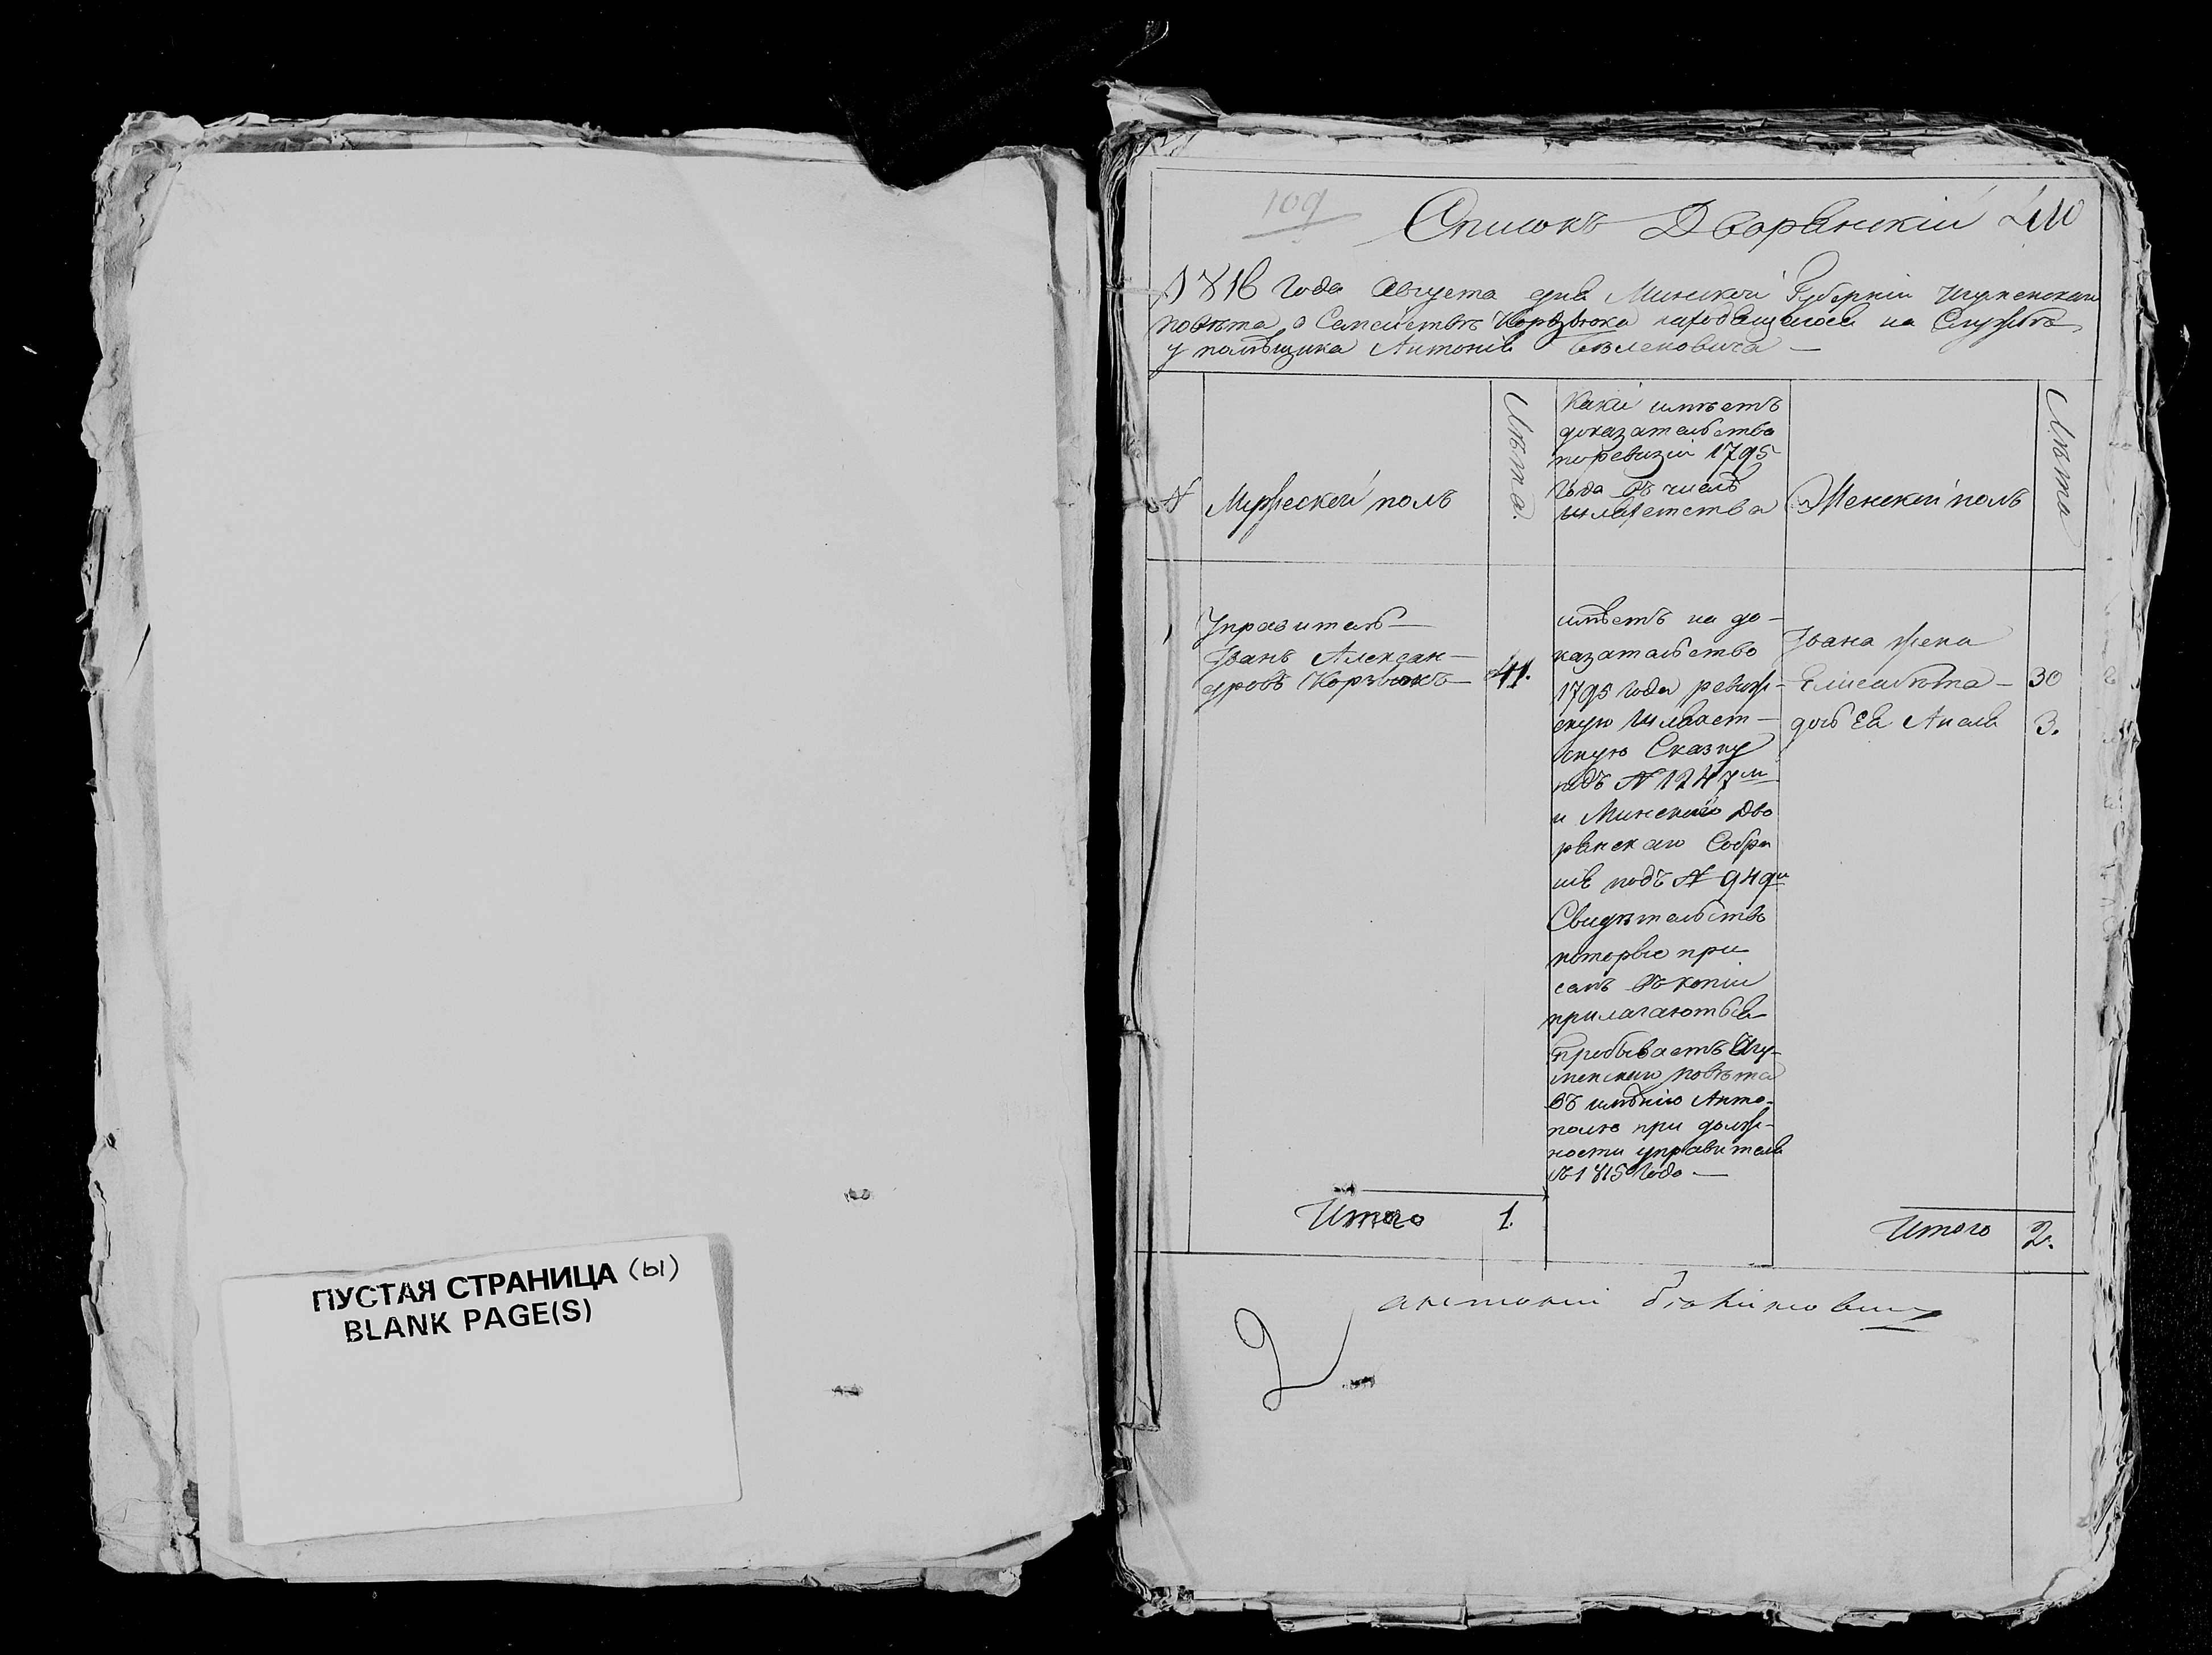 ПУСТАЯ СТРАНИЦА (ы)
BLANK PAGE(S)
109
Списокъ Дворянскій
1816 года Августа дня Минской Губерніи Игуменскаго
повѣта о Семействѣ находящемся на Службѣ
у помѣщика Антонія
N
Мужеской полъ
Лѣта.
Какіе имѣетъ
доказательства
поревизіи 1795
года въ числѣ
шляхетства
Женской полъ
Лѣта
1
Управитель
Іванъ Алексан-
дровъ Корзюкъ
41.
имѣетъ на до-
казательство
1795 года ревиж-
скую Шляхет-
скую Сказку
подъ N 1247м
и Минскаго Дво
рянскаго Собра
нія подъ N 949м
Свидѣтельство
которые при
семъ въ копіи
прилагаються
Пребываетъ Игу-
менскаго повѣта
въ имѣнію Анто-
полю при долж-
ности управителя
1815 года
Івана жена
Елисавѣта 30
дочь Ея Анеля 3.
Итого 1.
Итого 2.
антоній